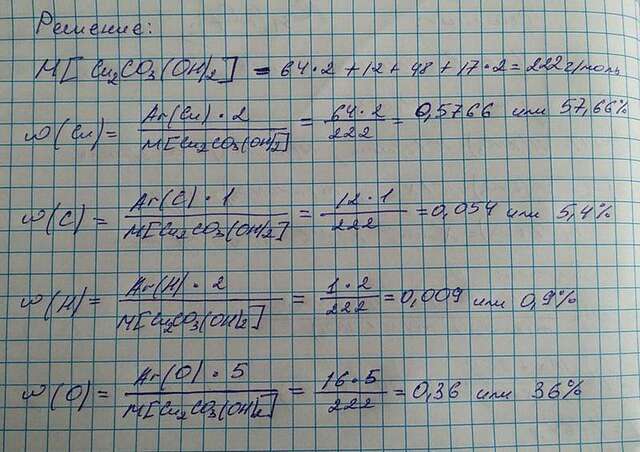 Решение:
M[Cu₂CO₃(OH)₂] = 64·2 + 12 + 48 + 17·2 = 222 г/моль
ω(Cu) = Ar(Cu)·2 / M[Cu₂CO₃(OH)₂] = 64·2 / 222 = 0,5766 или 57,66%
ω(C) = Ar(C)·1 / M[Cu₂CO₃(OH)₂] = 12·1 / 222 = 0,054 или 5,4%
ω(H) = Ar(H)·2 / M[Cu₂CO₃(OH)₂] = 1·2 / 222 = 0,009 или 0,9%
ω(O) = Ar(O)·5 / M[Cu₂CO₃(OH)₂] = 16·5 / 222 = 0,36 или 36%